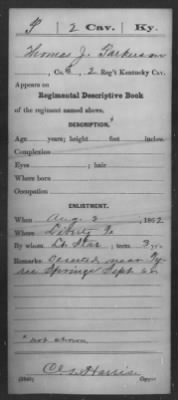 P | 2 Cav. | Ky.
Thomas J. Parkerson
, Co. , 2 Reg't Kentucky Cav.
Appears on
Regimental Descriptive Book
of the regiment named above.
DESCRIPTION.*
Age years; height feet inches.
Complexion
Eyes ; hair
Where born
Occupation
ENLISTMENT.
When Aug 2, 1862.
Where Liberty
By whom Lt Star; term 3 y'rs.
Remarks: Deserted near Ty
ree Springs Sept 62
*not shown
Harris
Copyist.